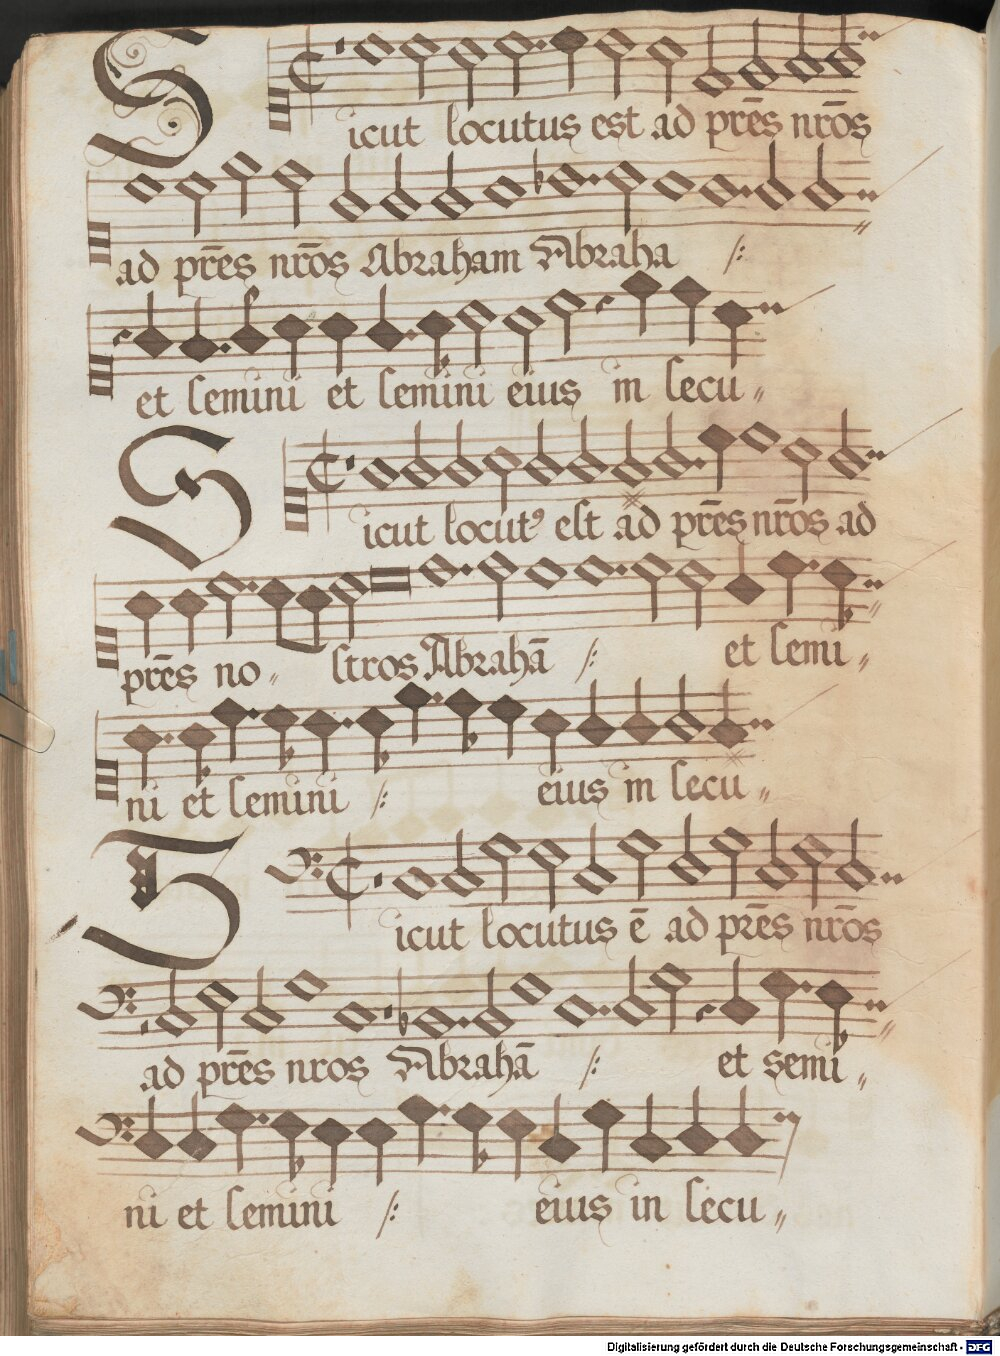 Sicut locutus est ad prēs nrōs
ad prēs nrōs Abraham Abraha /:
et semini et semini eius in secu〃
Sicut locutꝰ est ad prēs nrōs ad
prēs no〃 stros Abrahā /: et semi〃
ni et semini /: eius in secu〃
Sicut locutus ē ad prēs nrōs
ad prēs nros Abrahā /: et semi〃
ni et semini /: eius in secu〃
Digitalisierung gefördert durch die Deutsche Forschungsgemeinschaft - DFG